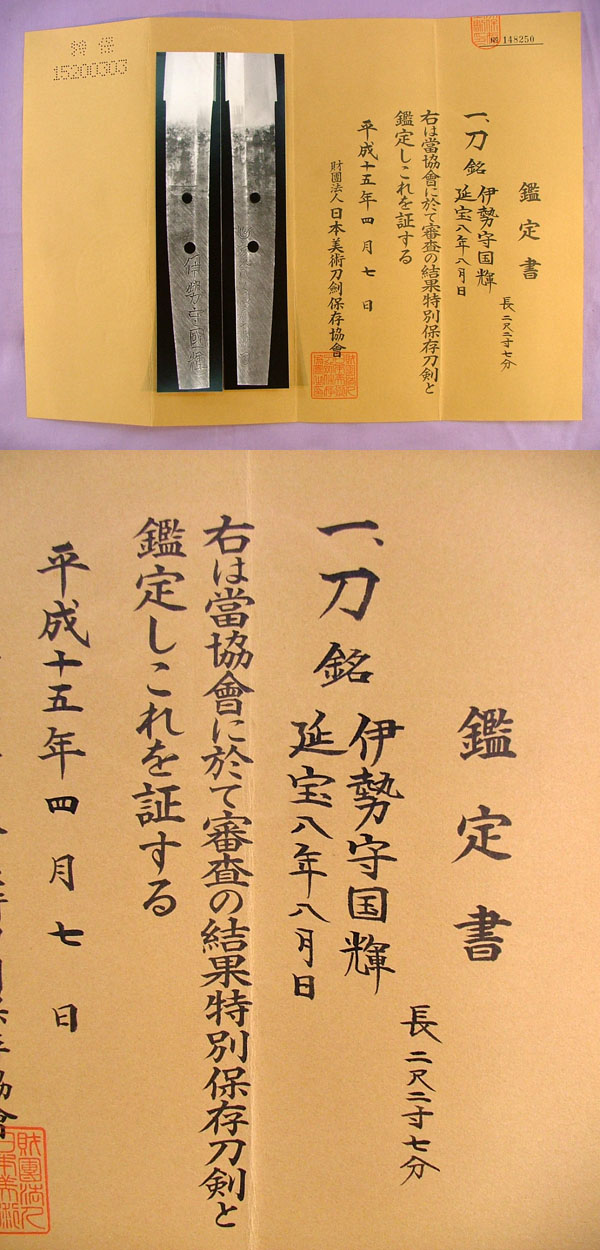 特保
15200303
148250
鑑定書
一、刀 銘 伊勢守国輝
延宝八年八月日
長二尺二寸七分
右は當協會に於て審査の結果特別保存刀剣と
鑑定しこれを証する
平成十五年四月七日
財團法人日本美術刀劍保存協會
伊勢守國輝
鑑定書
一、刀 銘 伊勢守国輝
延宝八年八月日
長二尺二寸七分
右は當協會に於て審査の結果特別保存刀剣と
鑑定しこれを証する
平成十五年四月七日